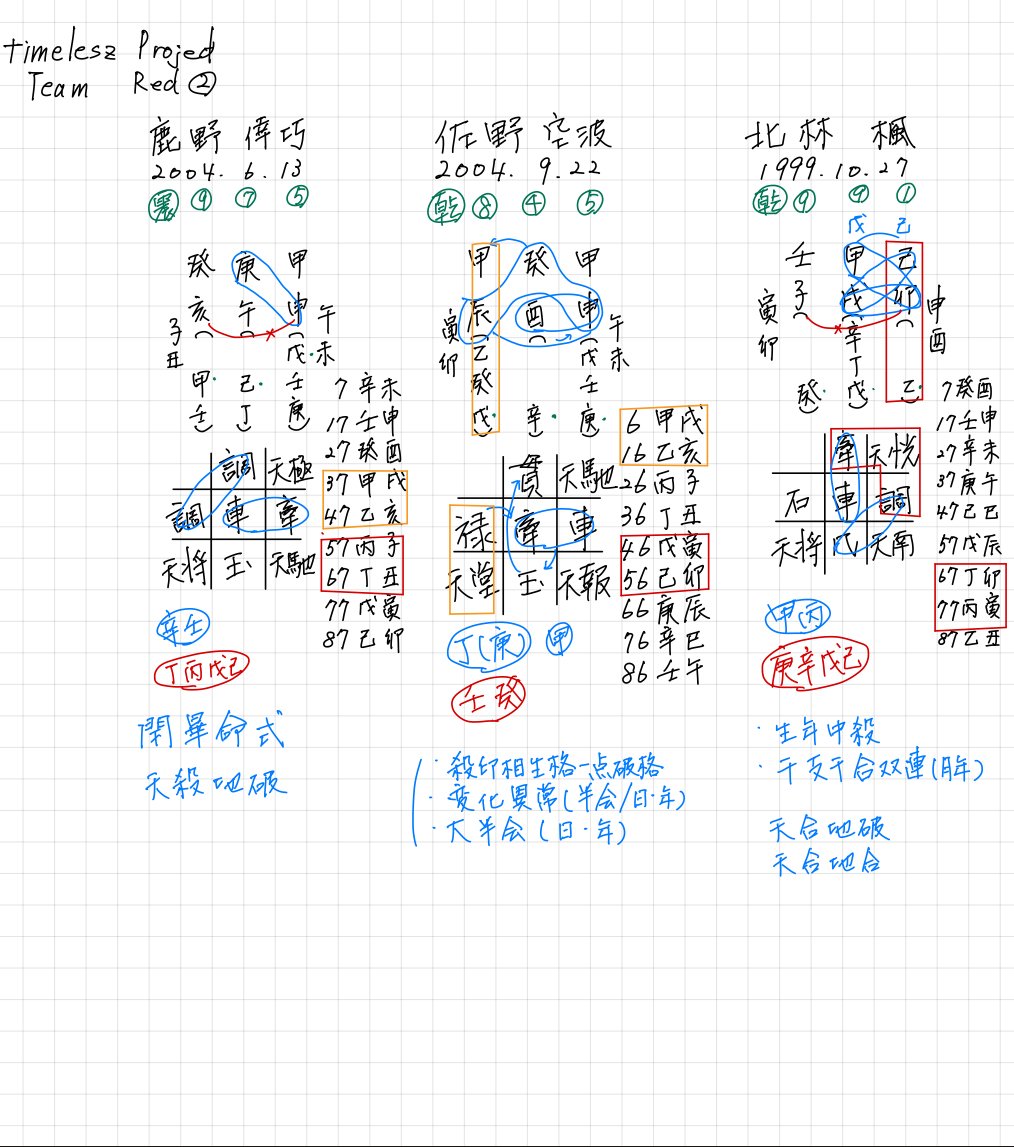 timelesz Projed
Team Red ②
鹿野 偉巧
2004. 6. 13
⑨ ⑦ ⑤
癸 庚 甲
亥 午 申
子丑
午未
戊
甲 己 壬
壬 丁 庚
調 天極
調 車 牽
天将 玉 天馳
7 辛未
17 壬申
27 癸酉
37 甲戌
47 乙亥
57 丙子
67 丁丑
77 戊寅
87 己卯
辛壬
丁丙戊己
閉畢命式
天殺地破
佐野 空波
2004. 9. 22
乾 ⑧ ④ ⑤
甲 癸 甲
辰 酉 申
寅卯
午未
乙 戊
癸 壬
戊 辛 庚
貫 天馳
禄 牽 車
天堂 玉 天報
6 甲戌
16 乙亥
26 丙子
36 丁丑
46 戊寅
56 己卯
66 庚辰
76 辛巳
86 壬午
丁(庚) 甲
壬癸
・殺印相生格一点破格
・変化異常(半会/日・年)
・大半会(日・年)
北林 楓
1999. 10. 27
乾 ⑨ ⑨ ①
戊 己
壬 甲 己
子 戌 卯
寅卯
申酉
辛
丁
癸 戊 乙
牽 天恍
石 車 調
天将 天南
7 癸酉
17 壬申
27 辛未
37 庚午
47 己巳
57 戊辰
67 丁卯
77 丙寅
87 乙丑
甲丙
庚辛戊己
・生年中殺
・干支干合双連(月年)
天合地破
天合地合